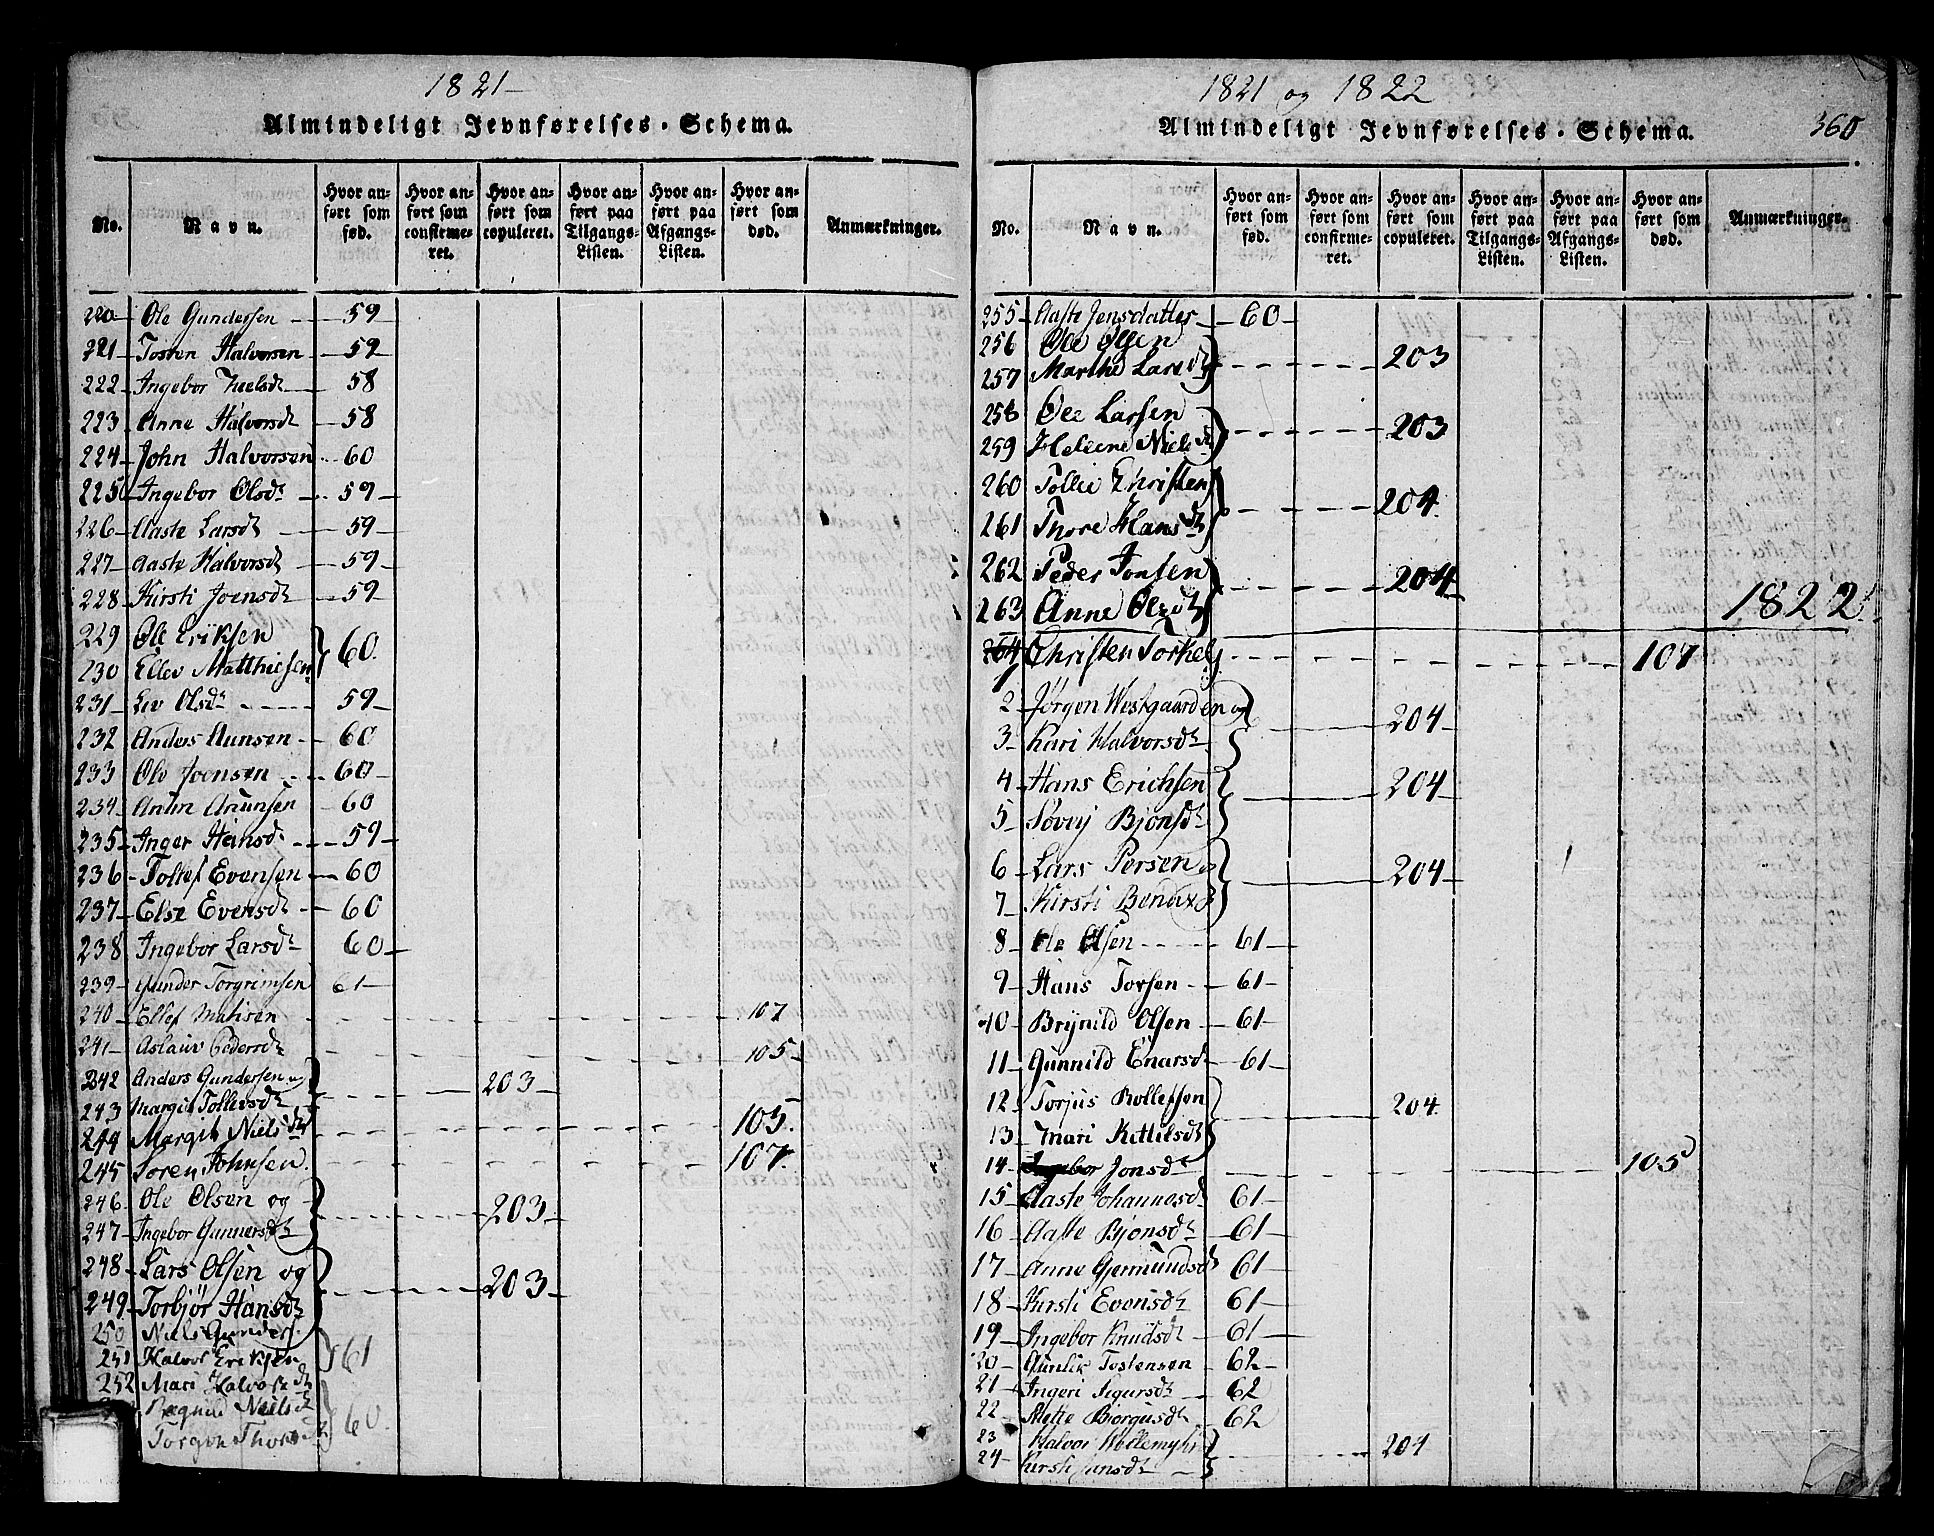 1821
Almindeligt Jevnførelses-Schema.
No. Navn. Hvor anført som fød. Hvor anført som confirmeret. Hvor anført som copuleret. Hvor anført paa Tilgangs-Listen. Hvor anført paa Afgangs-Listen. Hvor anført som død. Anmærkninger.
220 Ole Gundersen 59
221 Tosten Halvorsen 59
222 Ingebor Neelsdt 58
223 Anne Halvorsdt 58
224 John Halvorsen 60
225 Ingebor Olsdt 59
226 Aaste Larsdt 59
227 Aaste Halvorsdt 59
228 Kirsti Joensdt 59
229 Ole Eriksen
230 Ellev Matthiesen 60
231 Liv Olsdt 59
232 Anders Aunsen 60
233 Ole Joensen 60
234 Anun Anunsen 60
235 Inger Hansdt 59
236 Tollef Evensen 60
237 Else Evensdt 60
238 Ingebor Larsdt 60
239 Gunder Torgrimsen 61
240 Ellef Matisen 107
241 Aslaur Pedersdt 105
242 Anders Gundersen og
243 Margit Tollevsdt 203
244 Margit Nielsdt 105
245 Soren Johnsen 107
246 Ole Olsen og
247 Ingebor Gunnersdt 203
248 Lars Olsen og
249 Torbjør Hansdt 203
250 Niels Gunders.
251 Halvor Eriksen 61
252 Mari Halvorsdt
Nielsdt 60
Thorsdt
1821 og 1822
Almindeligt Jevnførelses-Schema. 360
No. Navn. Hvor anført som fød. Hvor anført som confirmeret. Hvor anført som copuleret. Hvor anført paa Tilgangs-Listen. Hvor anført paa Afgangs-Listen. Hvor anført som død. Anmærkninger.
255 Aaste Jensdatter 60
256 Ole Olsen
257 Marthe Larsdt 203
258 Ole Larsen
259 Heleene Nielsdt 203
260 Tollie Christen
261 Thore Hansdt 204
262 Peder Jonsen
263 Anne Olsdt 204
1822
1 Christen Torkels 107
2 Jørgen Westgaarden og
3 Kari Halvorsdt 204
4 Hans Erichsen
5 Søvej Bjønsdt 204
6 Lars Persen og
7 Kirsti Bendixd 204
8 Ole Olsen 61
9 Hans Torsen 61
10 Brynild Olsen 61
11 Gunnild Enarsdt 61
12 Torjus Rollefsøn
13 Mari Kittilsdt 204
14 Ingebor Jonsdt 105
15 Aaste Johannesdt 61
16 Aaste Bjonsdt 61
17 Anne Gjemundsdt 61
18 Kirsti Evensdt 61
19 Ingebor Knudsdt 61
20 Gunlik Tostensen 62
21 Ingeri Sigursdt 62
22 Mette Bjørgusdt 62
23 Halvor
24 Kirsti Jansdt 204